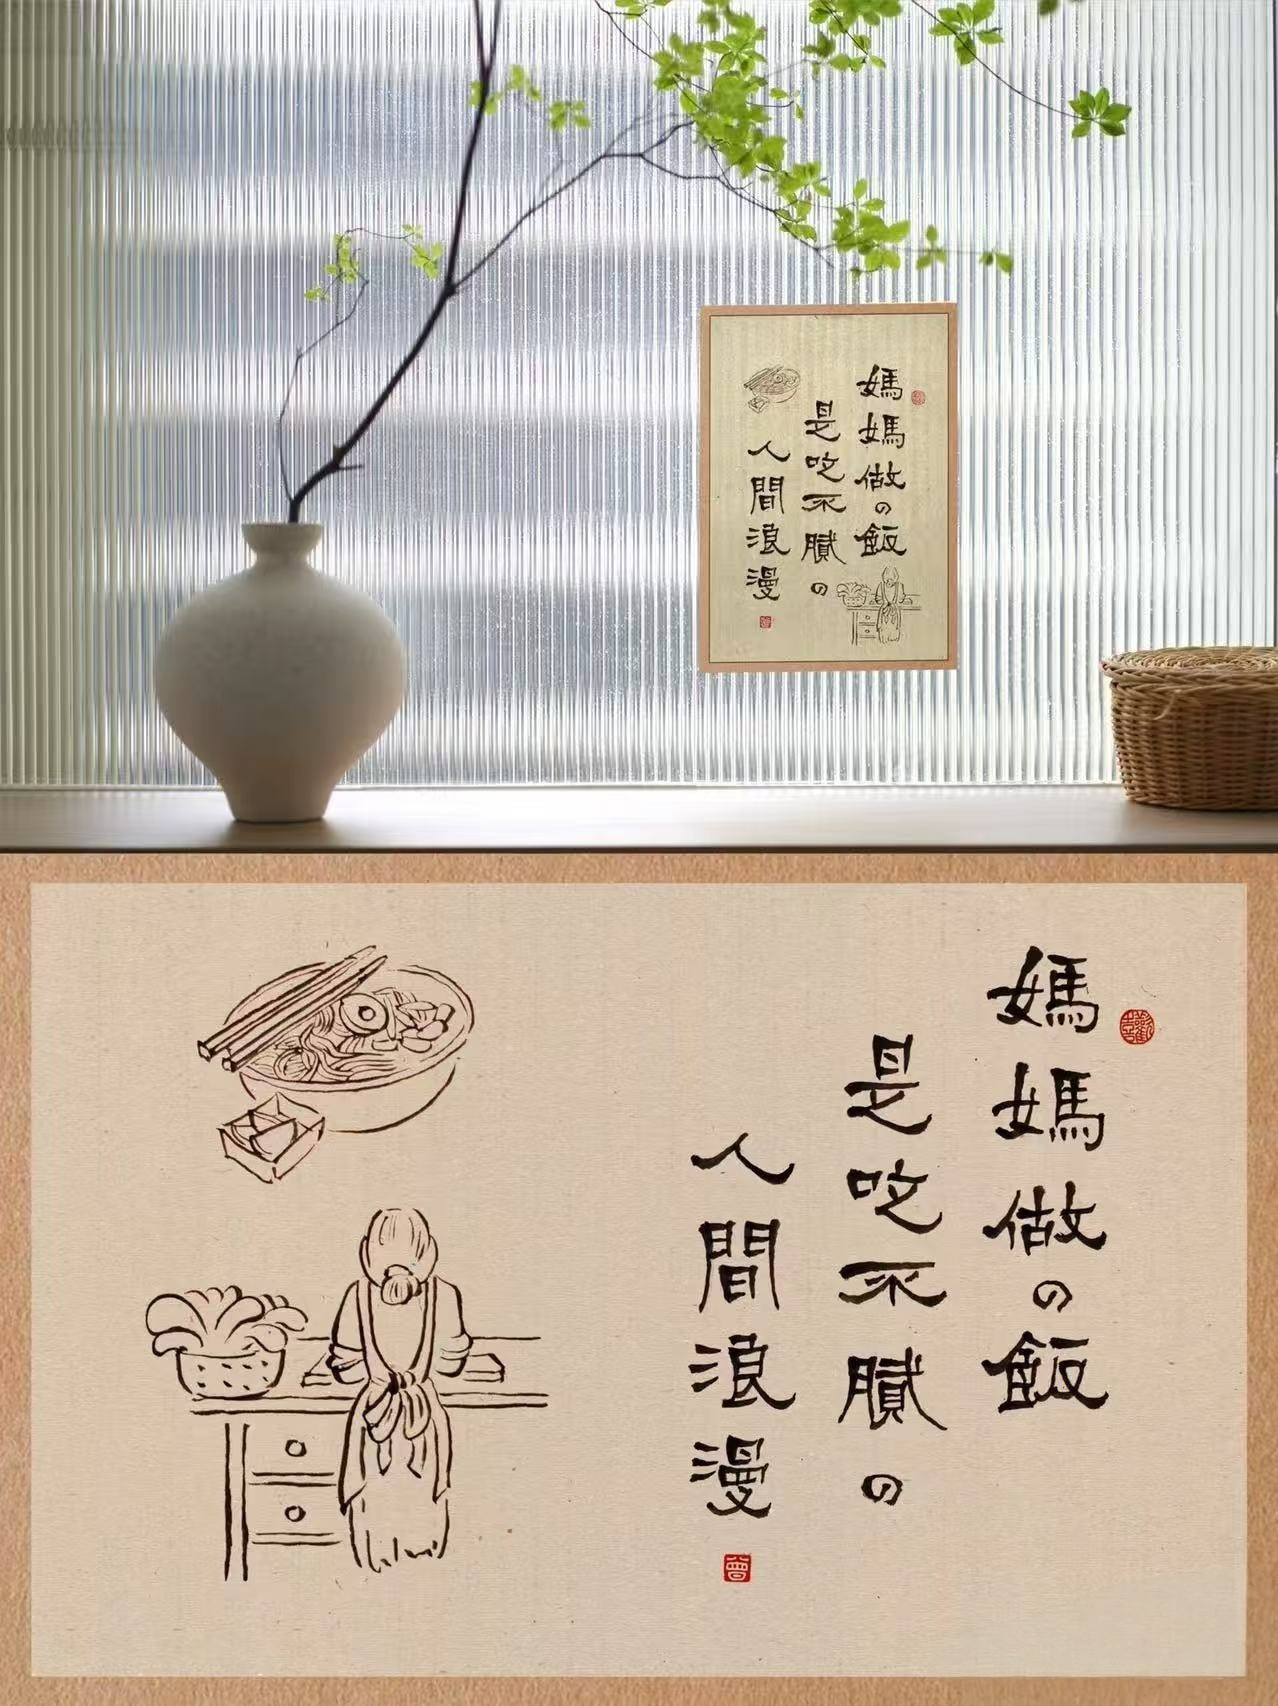 媽媽做の飯
是吃不膩の
人間浪漫
曾
媽媽做の飯
是吃不膩の
人間浪漫
曾